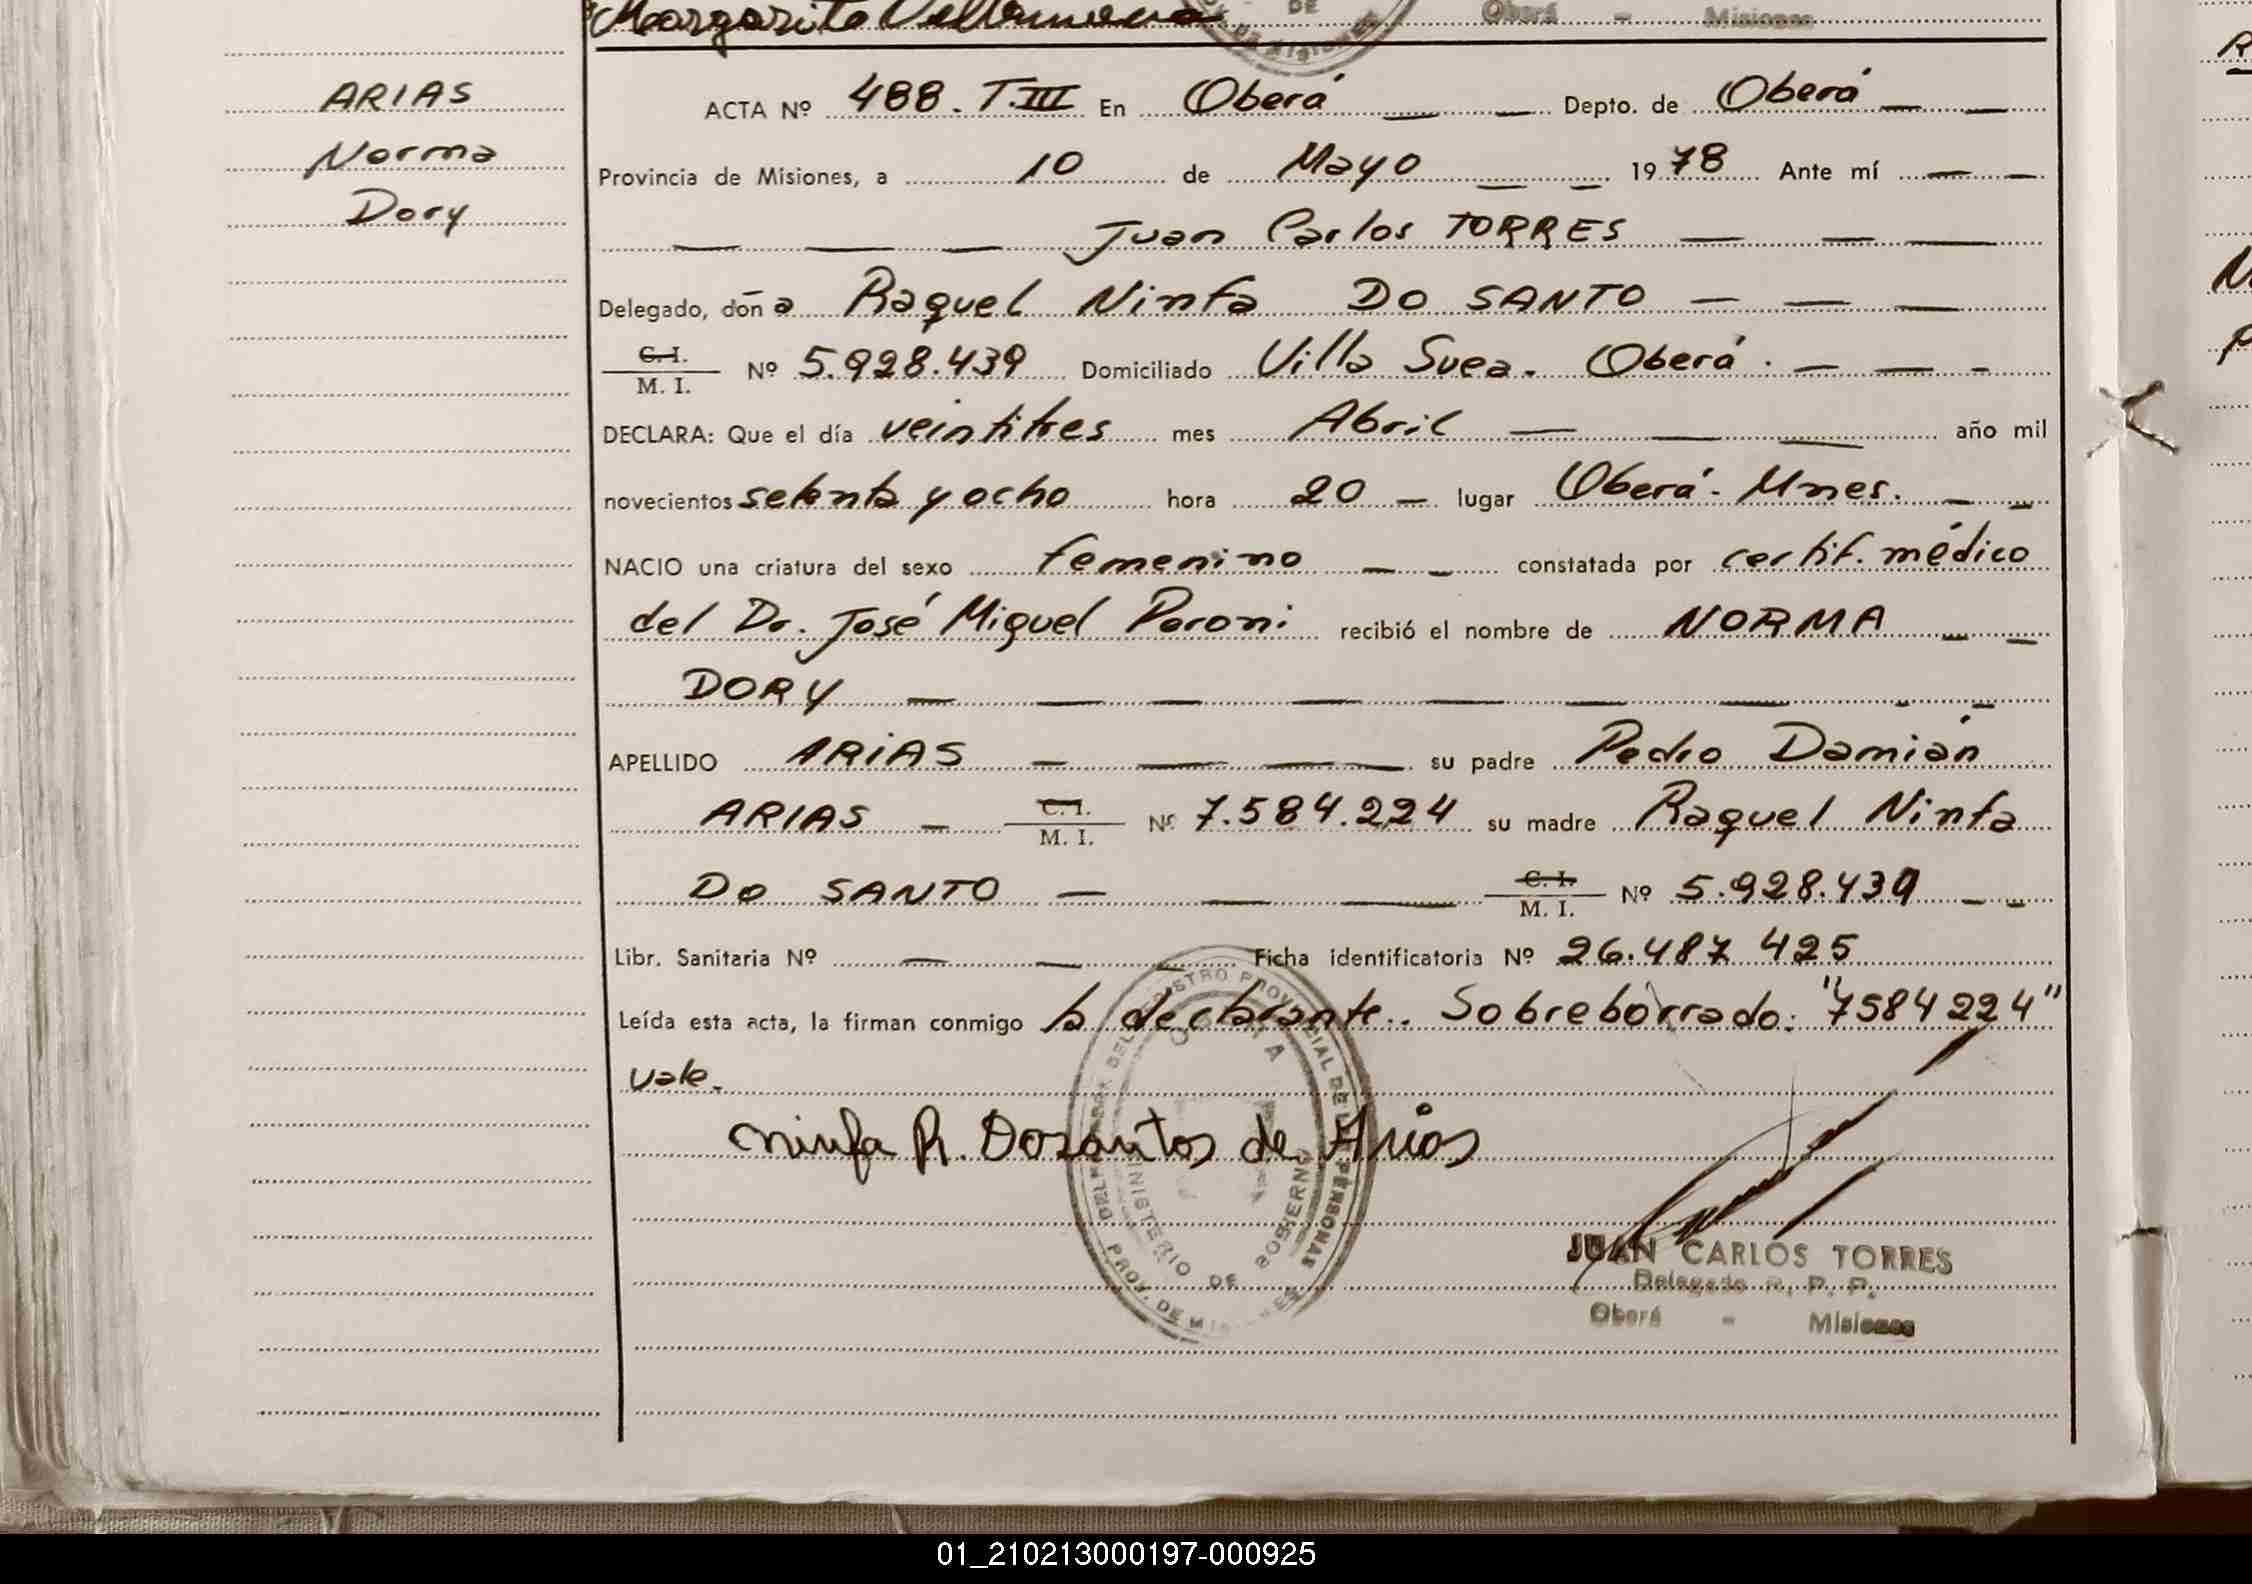 Margarita Villanueva
DE
DE MISIONES
Oberá - Misiones
ARIAS
Norma
Dory
ACTA Nº 488. T.III En Oberá — — Depto. de Oberá — —
Provincia de Misiones, a 10 de Mayo — — 1978 Ante mí — —
— — — Juan Carlos TORRES — — —
Delegado, don a Raquel Ninfa DO SANTO — — —
C. I.
M. I. Nº 5.928.439 Domiciliado Villa Svea. Oberá. — — -
DECLARA: Que el día veintitres mes Abril — — — año mil
novecientos setenta y ocho hora 20 — lugar Oberá. Mnes. — —
NACIO una criatura del sexo femenino — — constatada por certif. médico
del Dr. José Miguel Poroni recibió el nombre de NORMA — —
DORY — — — — — — — - —
APELLIDO ARIAS — — — — su padre Pedro Damián
ARIAS — C. I. M. I. Nº 7.584.224 su madre Raquel Ninfa
DO SANTO — — — C. I. M. I. Nº 5.928.439 — —
Libr. Sanitaria Nº — — — Ficha identificatoria Nº 26.487 425
Leída esta acta, la firman conmigo la declarante.. Sobreborrado: "7584224"
vale.
Ninfa R. Dosantos de Arias
REGISTRO PROVINCIAL DE LAS PERSONAS
OBERA
MINISTERIO DE GOBIERNO
PROV. DE MISIONES
JUAN CARLOS TORRES
Delegado R. P. P.
Oberá - Misiones
01_210213000197-000925